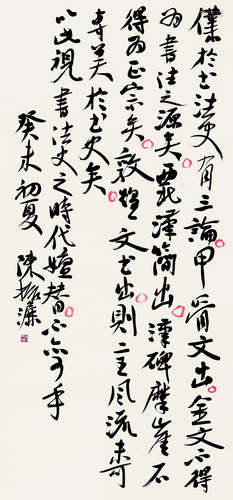 僕於书法史有三論甲骨文出金文不得
为書法之源矣西北漢简出漢碑摩崖不
得为正宗矣敦煌文书出則二王風流未可
專美於书史矣
以此視書法史之時代嬗替不亦可乎
癸未初夏 陳振濂